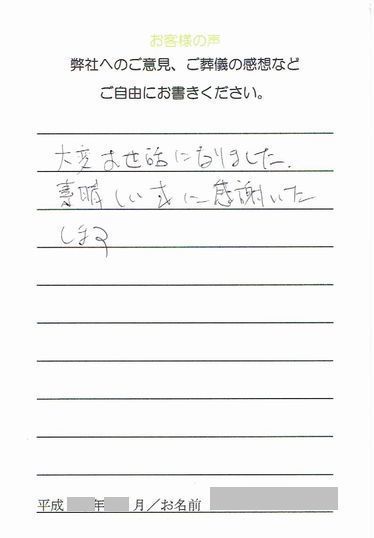 お客様の声
弊社へのご意見、ご葬儀の感想など
ご自由にお書きください。
大変お世話になりました.
素晴しい式に感謝いた
します
平成 年 月/お名前